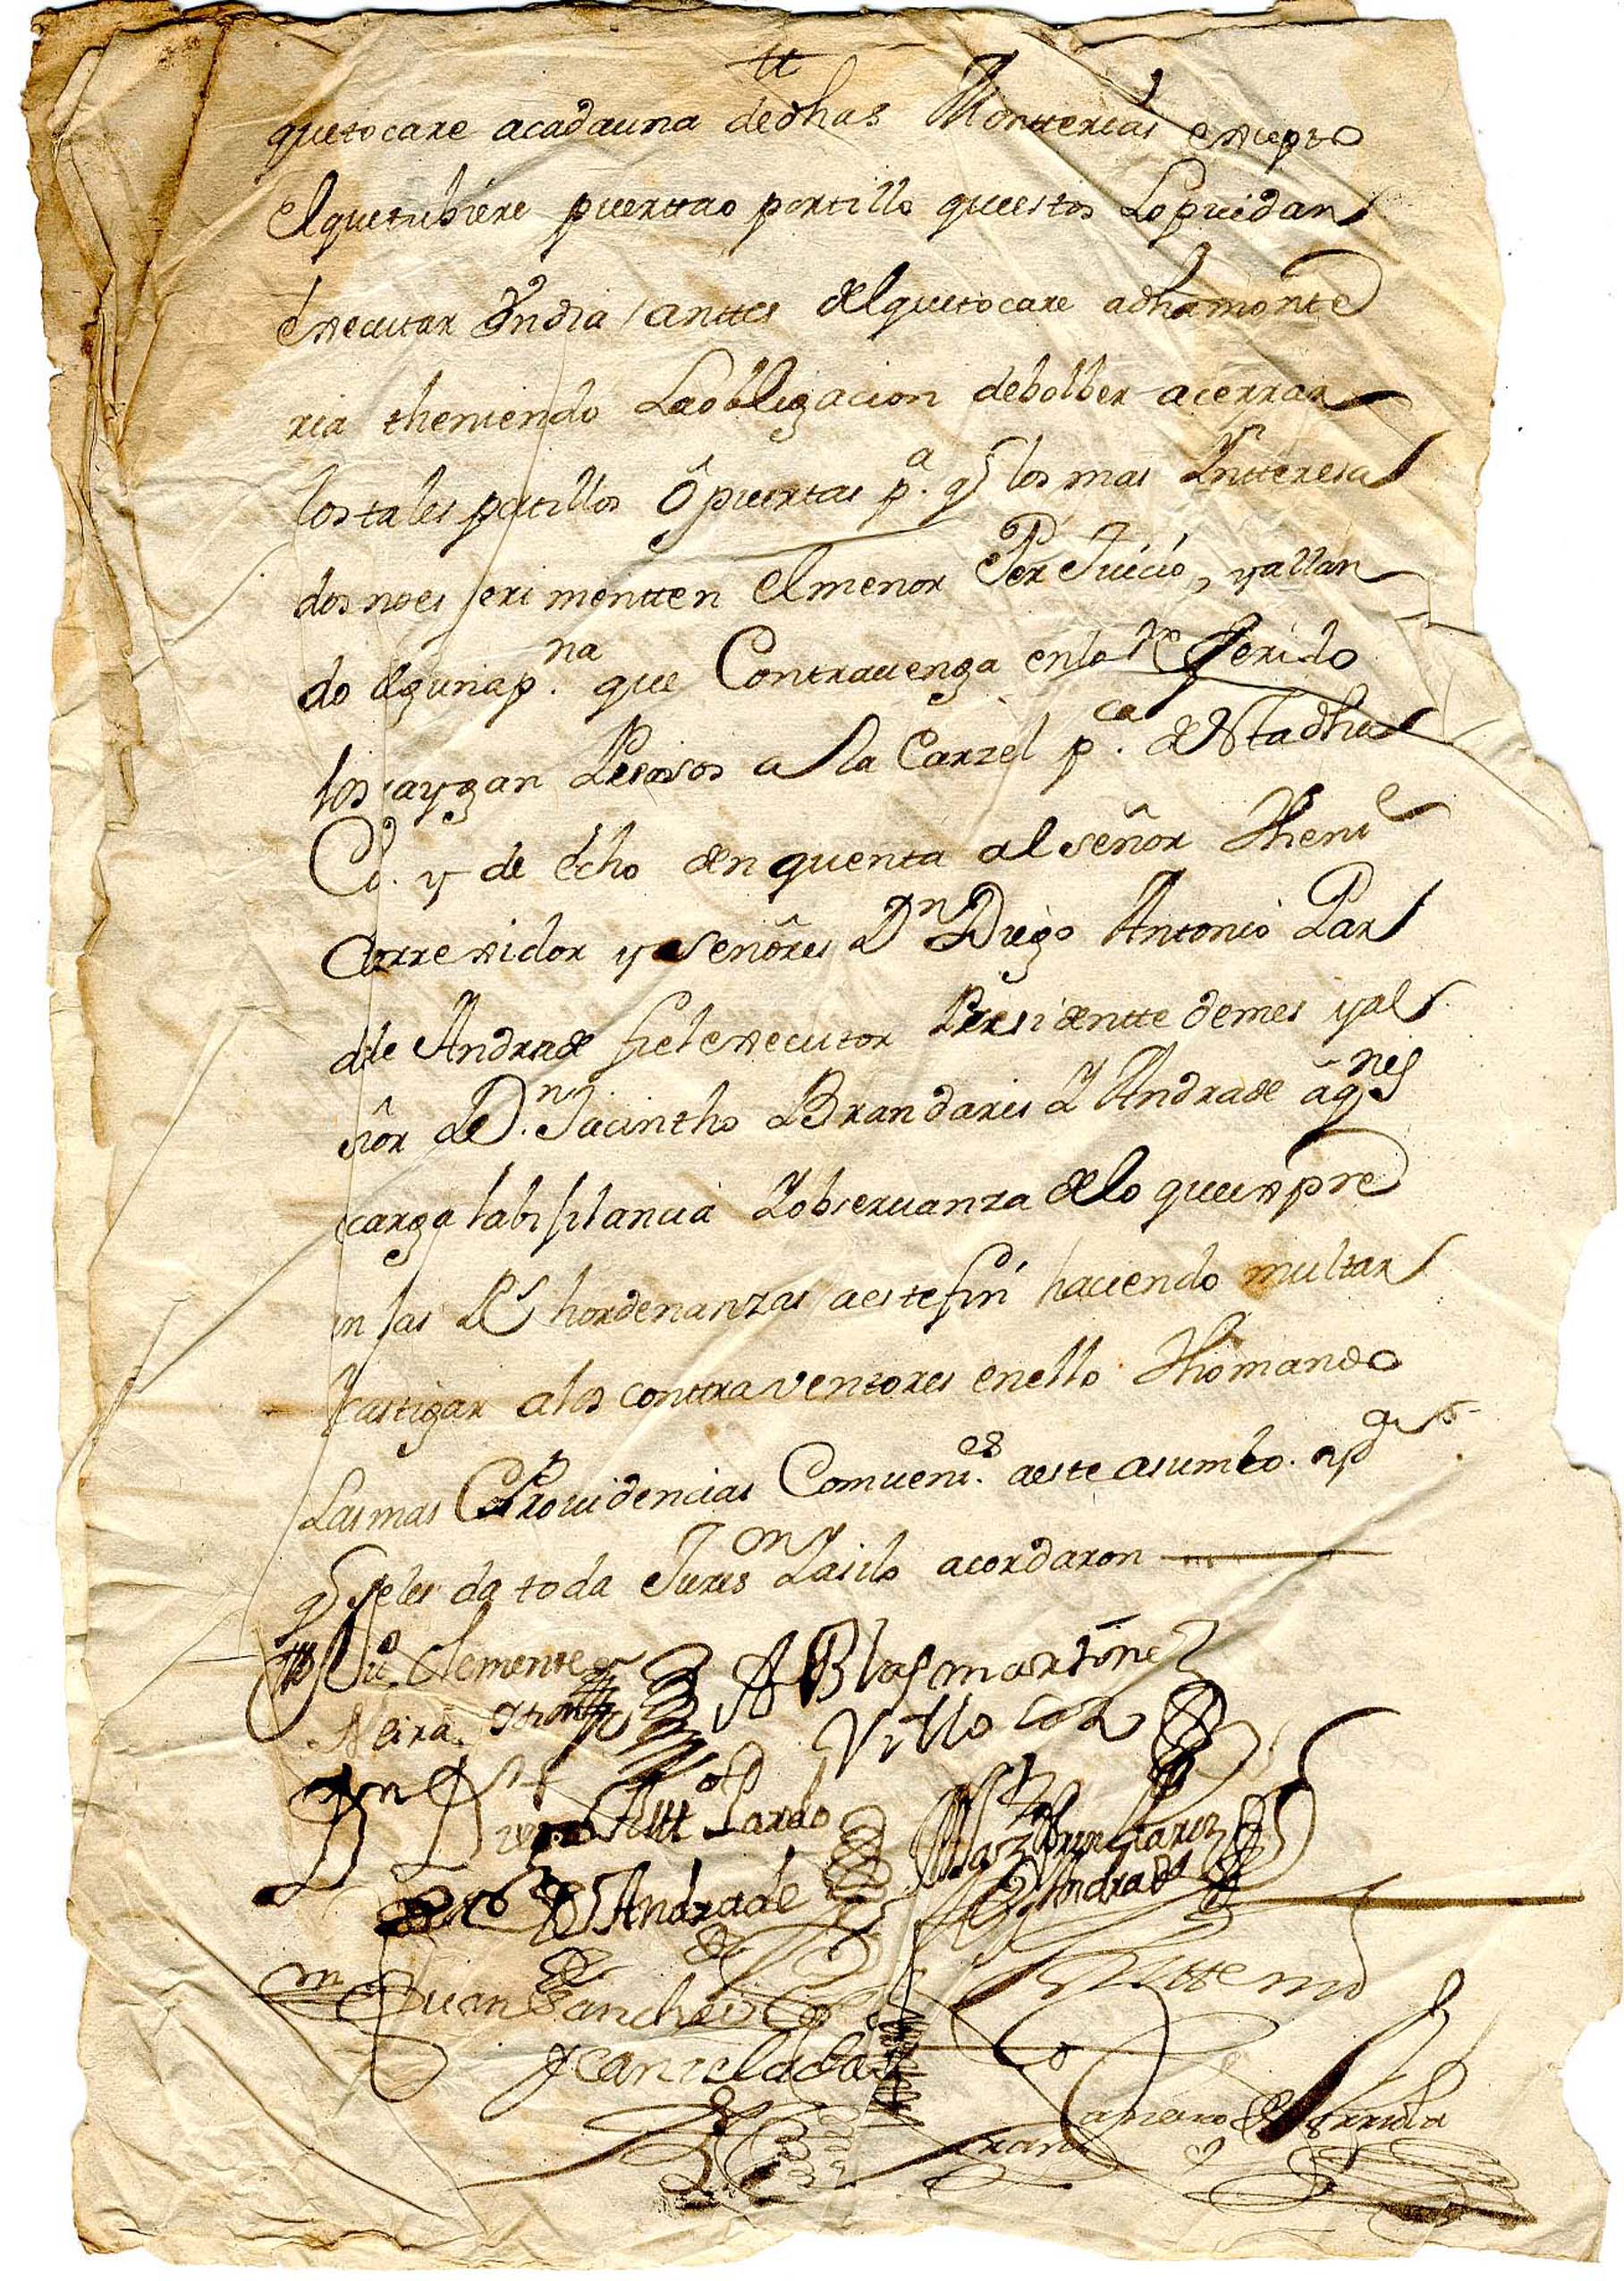 tt
que tocare acada una de dhas Montterias exepto
el que tubiére puertta o portillo que estos lo puedan
executtar Un dia anttes del que tocare a dha monte
ria theniendo La obligacion debolber a cerrar
los tales portillos ô puertas p.a q los mas Yntteresa
dos no esperimentten el menor Per Juicio, y allan
do alguna p.na que Contrauenga en lo Referido
los traygan Presos a la Carzel p.ca destadha
Cd. y de echo den quenta al señor Theni.e
Correxidor y a señores Dn Diego Antonio Par
do de Andrade fiel executor Presidentte de mes y al s
ñor D.n Jacintho Brandaris Y Andrade â qnes
se encarga la bisilancia Y obseruanza de lo que expre
san las Rs hordenanzas a este fin haciendo multar
Y castigar a los conttraventores en ello Thomando
Las mas Prouidencias Comueni.es a este asumto. p.a
q se les da toda Jurison Y asi lo acordaron
Clemente
Neira
Blas martinez
Villo
Dn Diego Antt.o Pardo
de Andrade
Andrade
Juan Sanchez
Cancelada
Antte mi